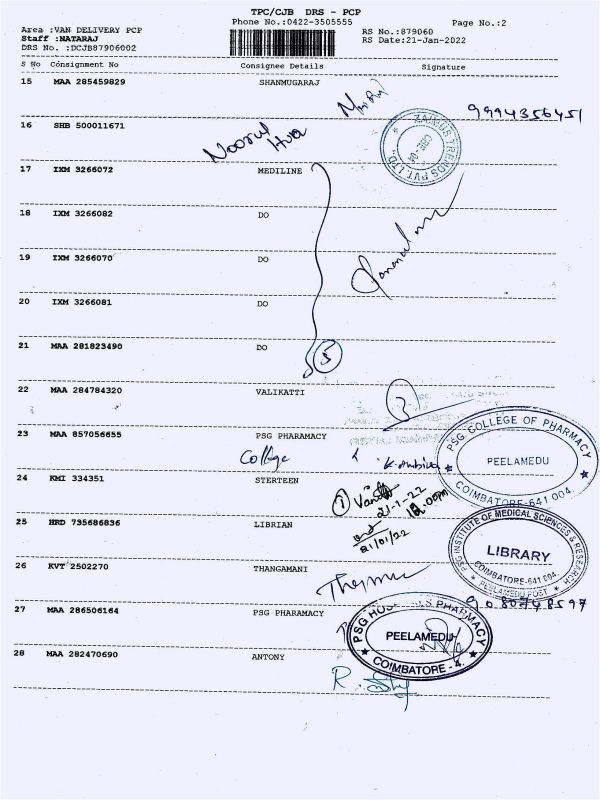 TPC/CJB DRS - PCP
Phone No.:0422-3505555
Page No.:2
Area :VAN DELIVERY PCP
Staff :NATARAJ
DRS No. :DCJB87906002
RS No.:879060
RS Date:21-Jan-2022
S No Consignment No Consignee Details Signature
15 MAA 285459829 SHANMUGARAJ
9994356451
16 SHB 500011671
Noorul
Hua
ZAIMUS TRENDS PVT. LTD.
CBE-04
17 IXM 3266072 MEDILINE
18 IXM 3266082 DO
19 IXM 3266070 DO
20 IXM 3266081 DO
21 MAA 281823490 DO
5
22 MAA 284784320 VALIKATTI
23 MAA 857056655 PSG PHARAMACY
College
K. Ambika
PSG COLLEGE OF PHARMACY
PEELAMEDU
COIMBATORE-641 004.
24 KMI 334351 STERTEEN
21-1-22
12.00pm
21/01/22
25 HRD 735686836 LIBRIAN
PSG INSTITUTE OF MEDICAL SCIENCES & RESEARCH
LIBRARY
COIMBATORE-641 004.
PEELAMEDU POST
26 KVT 2502270 THANGAMANI
27 MAA 286506164 PSG PHARAMACY
PSG HOSPITALS PHARMACY
PEELAMEDU
COIMBATORE - 4.
28 MAA 282470690 ANTONY